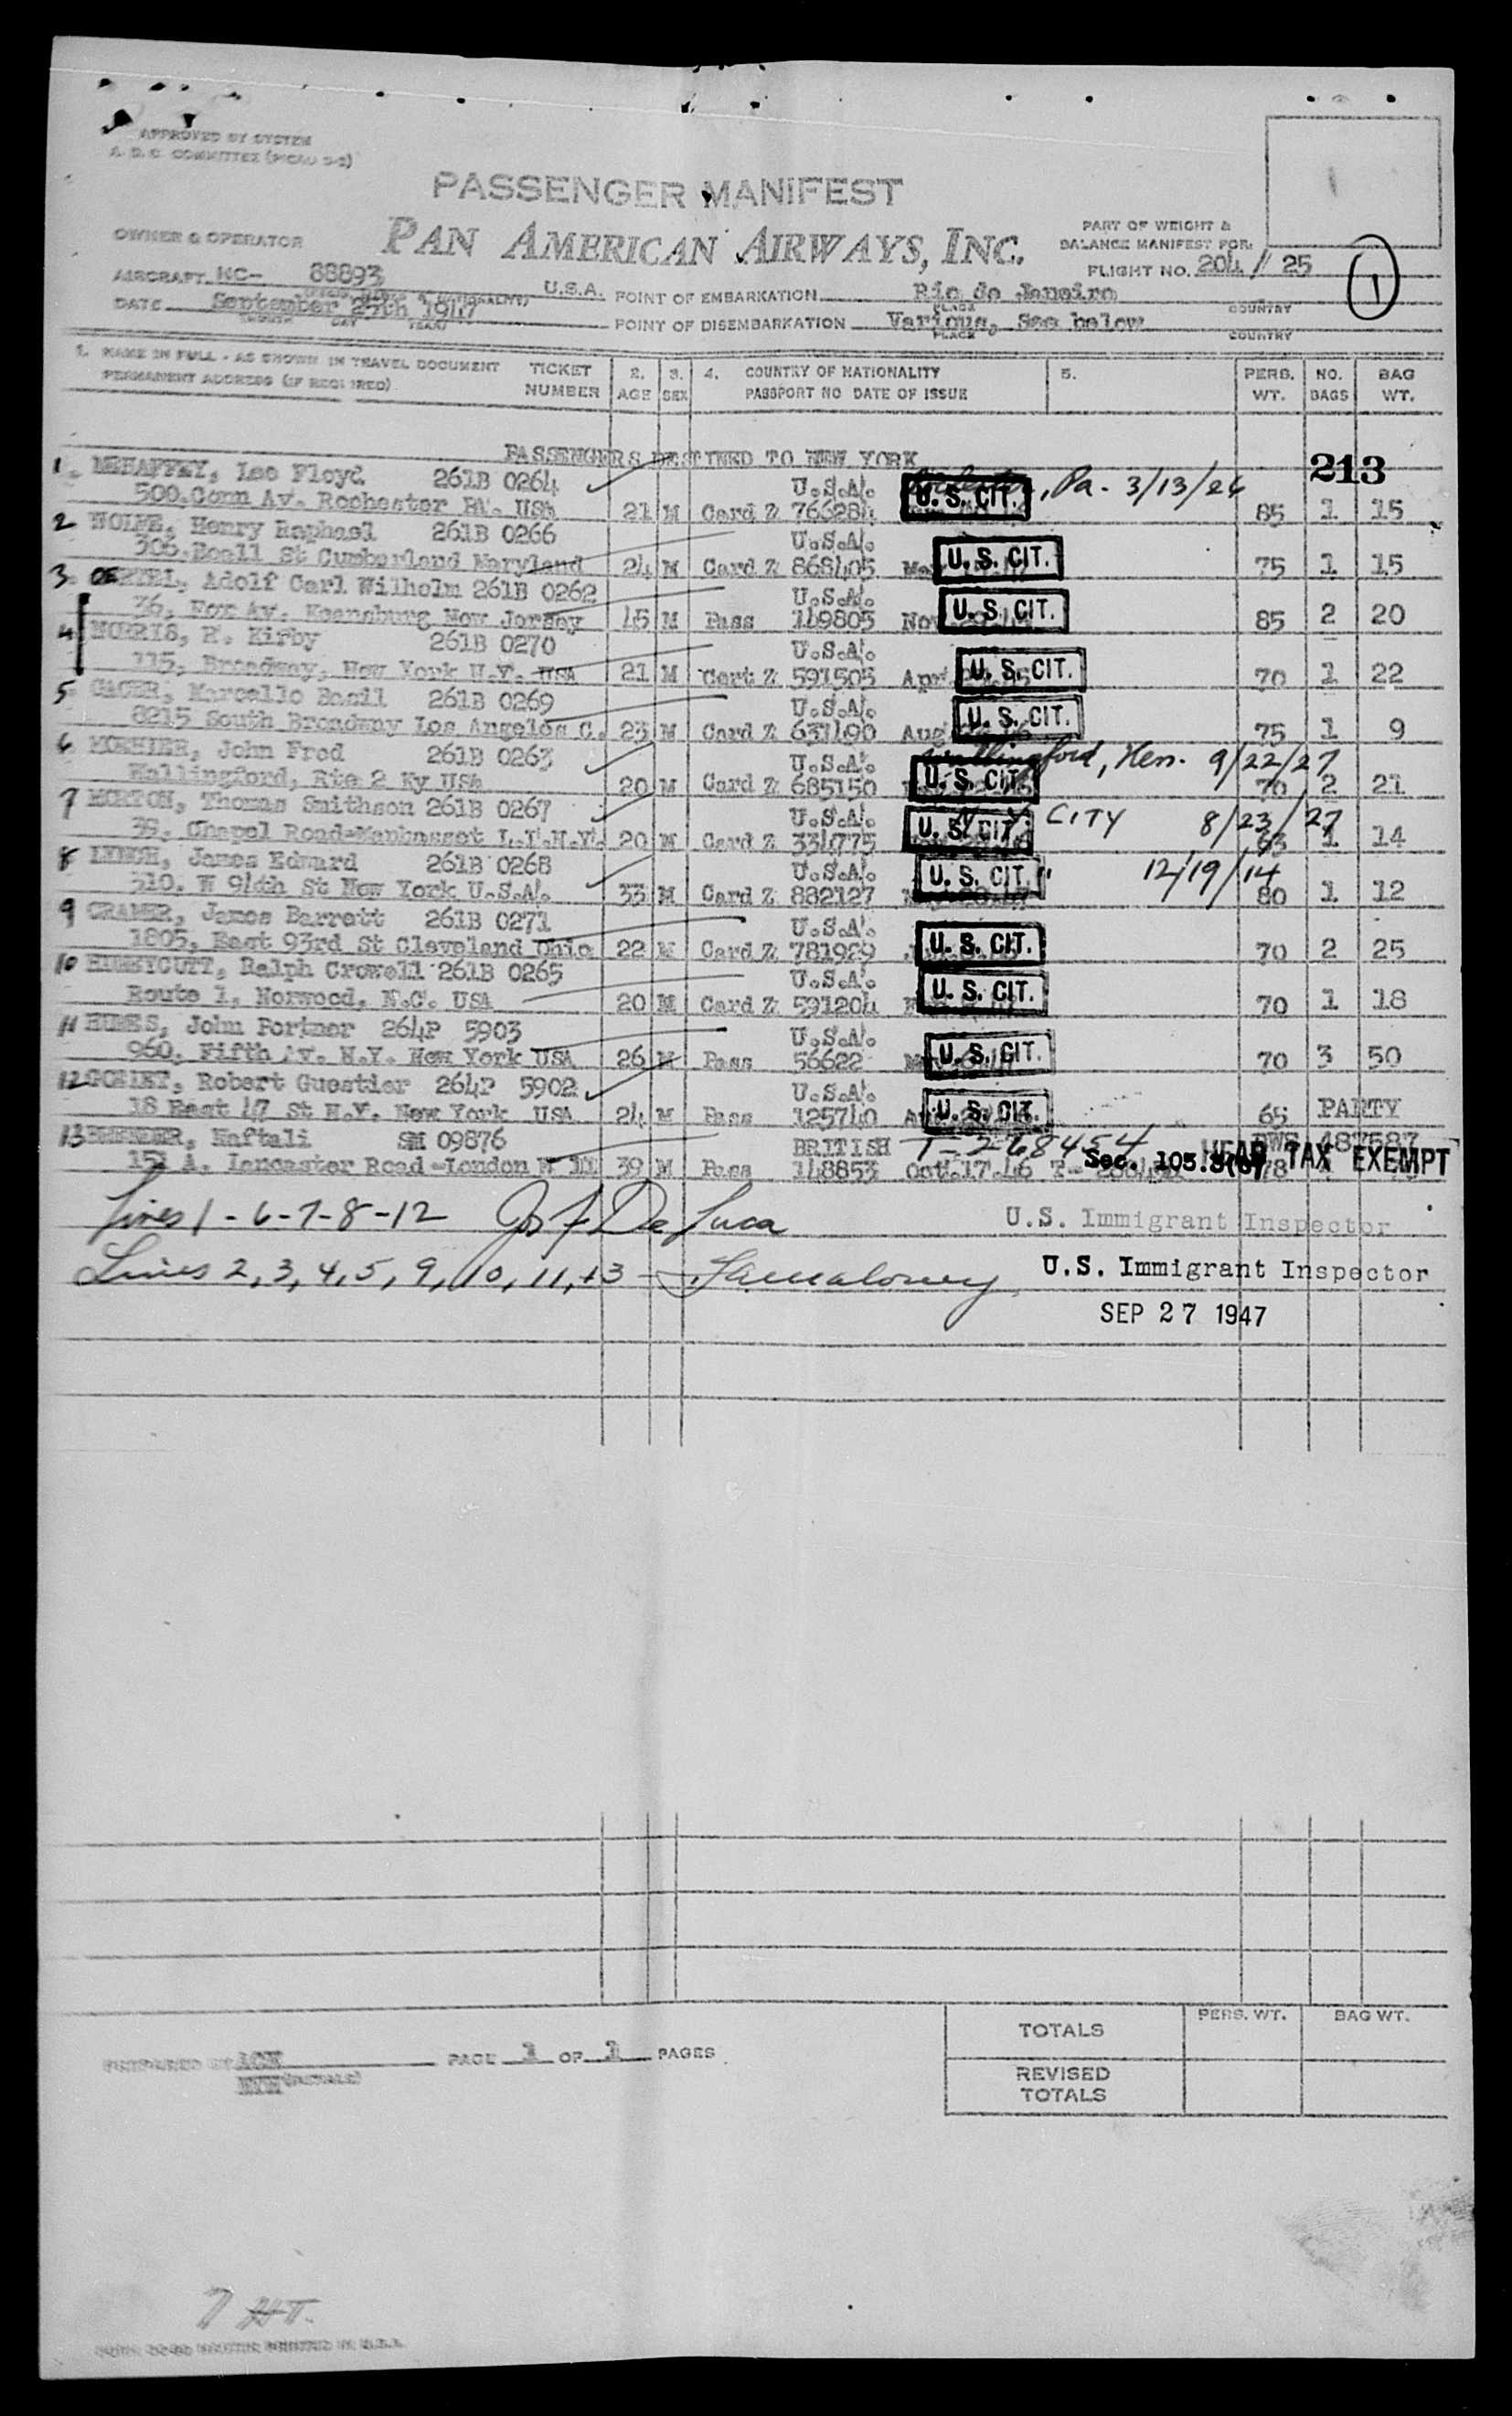 APPROVED BY SYSTEM
A. D. C. COMMITTEE (PICAO 9-2)
PASSENGER MANIFEST
OWNER & OPERATOR PAN AMERICAN AIRWAYS, INC.
PART OF WEIGHT &
BALANCE MANIFEST FOR:
FLIGHT NO. 204 / 25
1
AIRCRAFT NC- 88893 U.S.A. POINT OF EMBARKATION Rio de Janeiro
PLACE COUNTRY
DATE September 25th 1947 POINT OF DISEMBARKATION Various, See below
MONTH DAY YEAR PLACE COUNTRY
1. NAME IN FULL - AS SHOWN IN TRAVEL DOCUMENT TICKET 2. 3. 4. COUNTRY OF NATIONALITY 5. PERS. NO. BAG
PERMANENT ADDRESS (IF REQUIRED) NUMBER AGE SEX PASSPORT NO DATE OF ISSUE WT. BAGS WT.
PASSENGERS DESTINED TO NEW YORK
213
1. MEHAFFEY, Lee Floyd 261B 0264 U.S.A. U.S. CIT. , Pa. 3/13/26
500. Conn Av. Rochester PA. USA 21 M Card Z 766284 85 1 15
2 WOLFE, Henry Raphael 261B 0266 U.S.A.
305. Beall St Cumberland Maryland 24 M Card Z 868405 U.S. CIT. 75 1 15
3. OERTEL, Adolf Carl Wilhelm 261B 0262 U.S.A.
36, Fox Av. Keansburg New Jersey 45 M Pass 149805 Nov U.S. CIT. 85 2 20
4 NORRIS, R. Kirby 261B 0270 U.S.A.
115, Broadway, New York N.Y. USA 21 M Cert Z 591505 Apr U.S. CIT. 70 1 22
5. CACER, Marcello Basil 261B 0269 U.S.A.
8215 South Broadway Los Angeles C. 23 M Card Z 631490 Aug U.S. CIT. 75 1 9
6 John Fred 261B 0263 U.S.A. 9/22/27
Hallingford, Rte 2 Ky USA 20 M Card Z 685150 U.S. CIT. 70 2 21
7 MORTON, Thomas Smithson 261B 0267 U.S.A. CITY 8/23/27
39. Chapel Road-Manhasset L.I.N.Y. 20 M Card Z 334775 U.S. CIT. 63 1 14
8 LYNCH, James Edward 261B 0268 U.S.A. " 12/19/14
310. W 94th St New York U.S.A. 33 M Card Z 882127 U.S. CIT. 80 1 12
9 CRAMER, James Barrett 261B 0271 U.S.A.
1805, East 93rd St Cleveland Ohio 22 M Card Z 781929 U.S. CIT. 70 2 25
10 HUNEYCUTT, Ralph Crowell 261B 0265 U.S.A.
Route 1, Norwood, N.C. USA 20 M Card Z 591204 U.S. CIT. 70 1 18
11 HUMES, John Portner 264P 5903 U.S.A.
960. Fifth Av. N.Y. New York USA 26 M Pass 56622 U.S. CIT. 70 3 50
12 GOELET, Robert Guestier 264P 5902 U.S.A.
18 East 47 St N.Y. New York USA 24 M Pass 125740 U.S. CIT. 65 PARTY
13 Naftali SM 09876 BRITISH T-268454 487587
Lancaster Road-London 39 M Pass 148853 Oct.17.46 Sec. 105.3(b) HEAD TAX EXEMPT 78
Lines 1-6-7-8-12 Jos F De Luca U.S. Immigrant Inspector
Lines 2,3,4,5,9,10,11,+13 U.S. Immigrant Inspector
SEP 27 1947
TOTALS PERS. WT. BAG WT.
REVISED
TOTALS
PREPARED BY PAGE 1 OF 1 PAGES
7 HT.